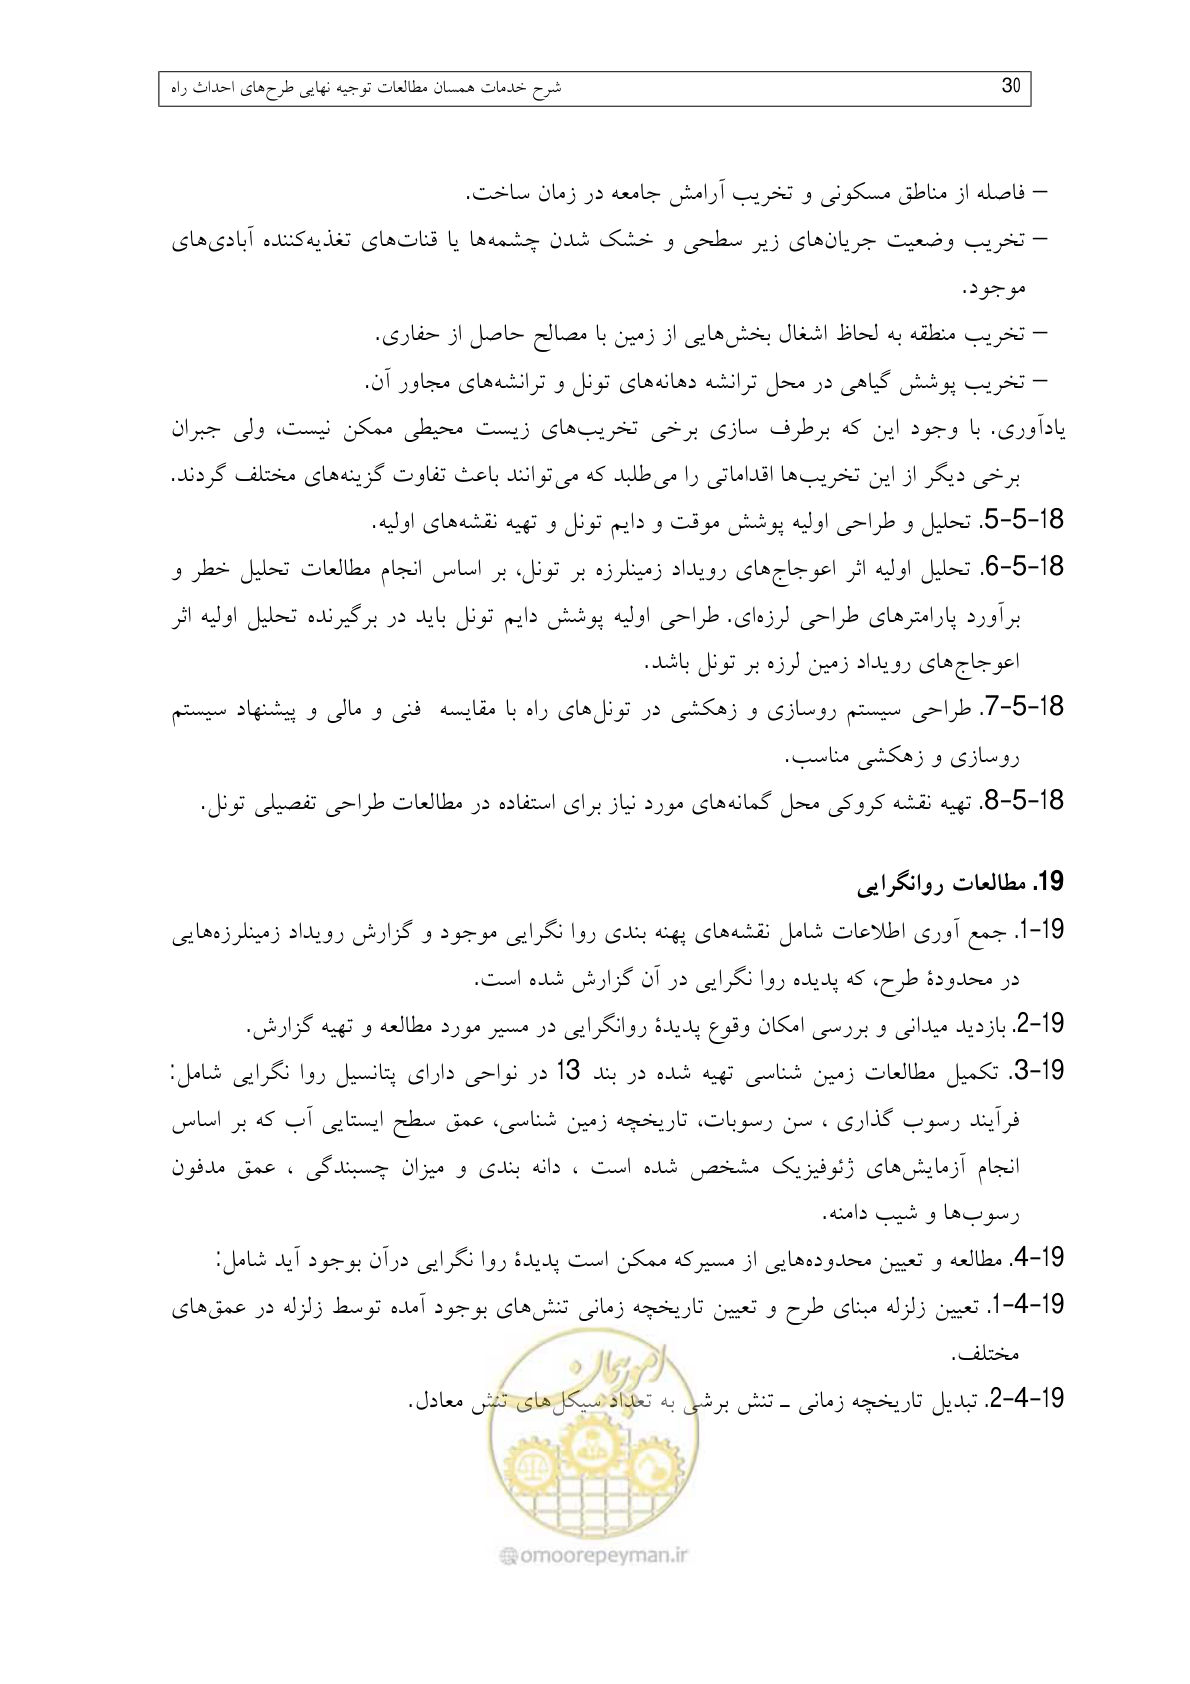 30 شرح خدمات همسان مطالعات توجیه نهایی طرح‌های احداث راه
– فاصله از مناطق مسکونی و تخریب آرامش جامعه در زمان ساخت.
– تخریب وضعیت جریان‌های زیر سطحی و خشک شدن چشمه‌ها یا قنات‌های تغذیه‌کننده آبادی‌های
موجود.
– تخریب منطقه به لحاظ اشغال بخش‌هایی از زمین با مصالح حاصل از حفاری.
– تخریب پوشش گیاهی در محل ترانشه دهانه‌های تونل و ترانشه‌های مجاور آن.
یادآوری. با وجود این که برطرف سازی برخی تخریب‌های زیست محیطی ممکن نیست، ولی جبران
برخی دیگر از این تخریب‌ها اقداماتی را می‌طلبد که می‌توانند باعث تفاوت گزینه‌های مختلف گردند.
18-5-5. تحلیل و طراحی اولیه پوشش موقت و دایم تونل و تهیه نقشه‌های اولیه.
18-5-6. تحلیل اولیه اثر اعوجاج‌های رویداد زمینلرزه بر تونل، بر اساس انجام مطالعات تحلیل خطر و
برآورد پارامترهای طراحی لرزه‌ای. طراحی اولیه پوشش دایم تونل باید در برگیرنده تحلیل اولیه اثر
اعوجاج‌های رویداد زمین لرزه بر تونل باشد.
18-5-7. طراحی سیستم روسازی و زهکشی در تونل‌های راه با مقایسه فنی و مالی و پیشنهاد سیستم
روسازی و زهکشی مناسب.
18-5-8. تهیه نقشه کروکی محل گمانه‌های مورد نیاز برای استفاده در مطالعات طراحی تفصیلی تونل.
19. مطالعات روانگرایی
19-1. جمع آوری اطلاعات شامل نقشه‌های پهنه بندی روا نگرایی موجود و گزارش رویداد زمینلرزه‌هایی
در محدودۀ طرح، که پدیده روا نگرایی در آن گزارش شده است.
19-2. بازدید میدانی و بررسی امکان وقوع پدیدۀ روانگرایی در مسیر مورد مطالعه و تهیه گزارش.
19-3. تکمیل مطالعات زمین شناسی تهیه شده در بند 13 در نواحی دارای پتانسیل روا نگرایی شامل:
فرآیند رسوب گذاری ، سن رسوبات، تاریخچه زمین شناسی، عمق سطح ایستایی آب که بر اساس
انجام آزمایش‌های ژئوفیزیک مشخص شده است ، دانه بندی و میزان چسبندگی ، عمق مدفون
رسوب‌ها و شیب دامنه.
19-4. مطالعه و تعیین محدوده‌هایی از مسیرکه ممکن است پدیدۀ روا نگرایی درآن بوجود آید شامل:
19-4-1. تعیین زلزله مبنای طرح و تعیین تاریخچه زمانی تنش‌های بوجود آمده توسط زلزله در عمق‌های
مختلف.
19-4-2. تبدیل تاریخچه زمانی – تنش برشی به تعداد سیکل‌های تنش معادل.
امور پیمان
@omoorepeyman.ir